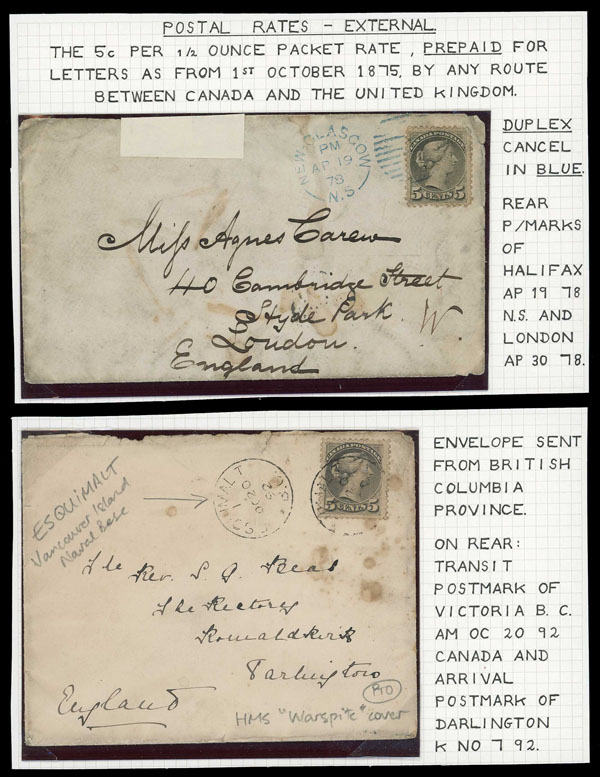 POSTAL RATES - EXTERNAL.
THE 5c PER 1/2 OUNCE PACKET RATE, PREPAID FOR
LETTERS AS FROM 1ST OCTOBER 1875, BY ANY ROUTE
BETWEEN CANADA AND THE UNITED KINGDOM.
DUPLEX
CANCEL
IN BLUE.
REAR
P/MARKS
OF
HALIFAX
AP 19 78
N.S. AND
LONDON
AP 30 78.
NEW GLASGOW
PM
AP 19
78
N.S
CANADA POSTAGE
5 CENTS 5
Miss Agnes Carew
40 Cambridge Street
Hyde Park. W.
London.
England
ENVELOPE SENT
FROM BRITISH
COLUMBIA
PROVINCE.
ON REAR:
TRANSIT
POSTMARK OF
VICTORIA B.C.
AM OC 20 92
CANADA AND
ARRIVAL
POSTMARK OF
DARLINGTON
K NO 7 92.
ESQUIMALT
Vancouver Island
Naval Base
5 CENTS 5
The
Rev. S. J.
The Rectory
Romaldkirk
Darlington
England
PTO
HMS "Warspite" cover